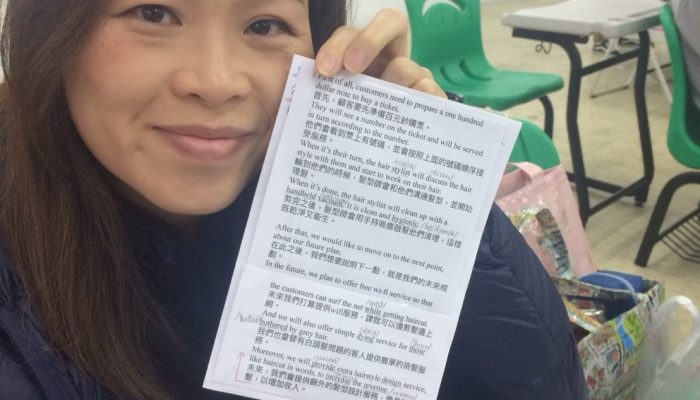 First of all, customers need to prepare a one hundred
dollar note to buy a ticket.
首先，顧客要先準備百元鈔購票。
They will see a number on the ticket and will be served
in turn according to the number.
他們會看到票上有號碼，並會按照上面的號碼順序接
受服務。
When it's their turn, the hair stylist will discuss the hair
style with them and start to work on their hair.
輪到他們的時候，髮型師會和他們溝通髮型，並開始
理髮。
When it's done, the hair stylist will clean up with a
handheld vacuum. It is clean and hygienic.
剪完之後，髮型師會用手持吸塵器幫他們清理，這樣
既乾淨又衛生。
After that, we would like to move on to the next point,
about our future plan.
在此之後，我們想要說明下一點，就是我們的未來規
劃。
In the future, we plan to offer free wi-fi service so that
the customers can surf the net while getting haircut.
未來我們打算提供wifi服務，讓就可以邊剪髮邊上
網。
And we will also offer simple dying service for those
bothered by grey hair.
我們也會替有白頭髮問題的客人提供簡單的染髮服
務。
Moreover, we will provide extra hairstyle design service,
like haircut in words, to increase the revenue.
未來，我們會提供額外的髮型設計服務，像是
髮，以增加收入。